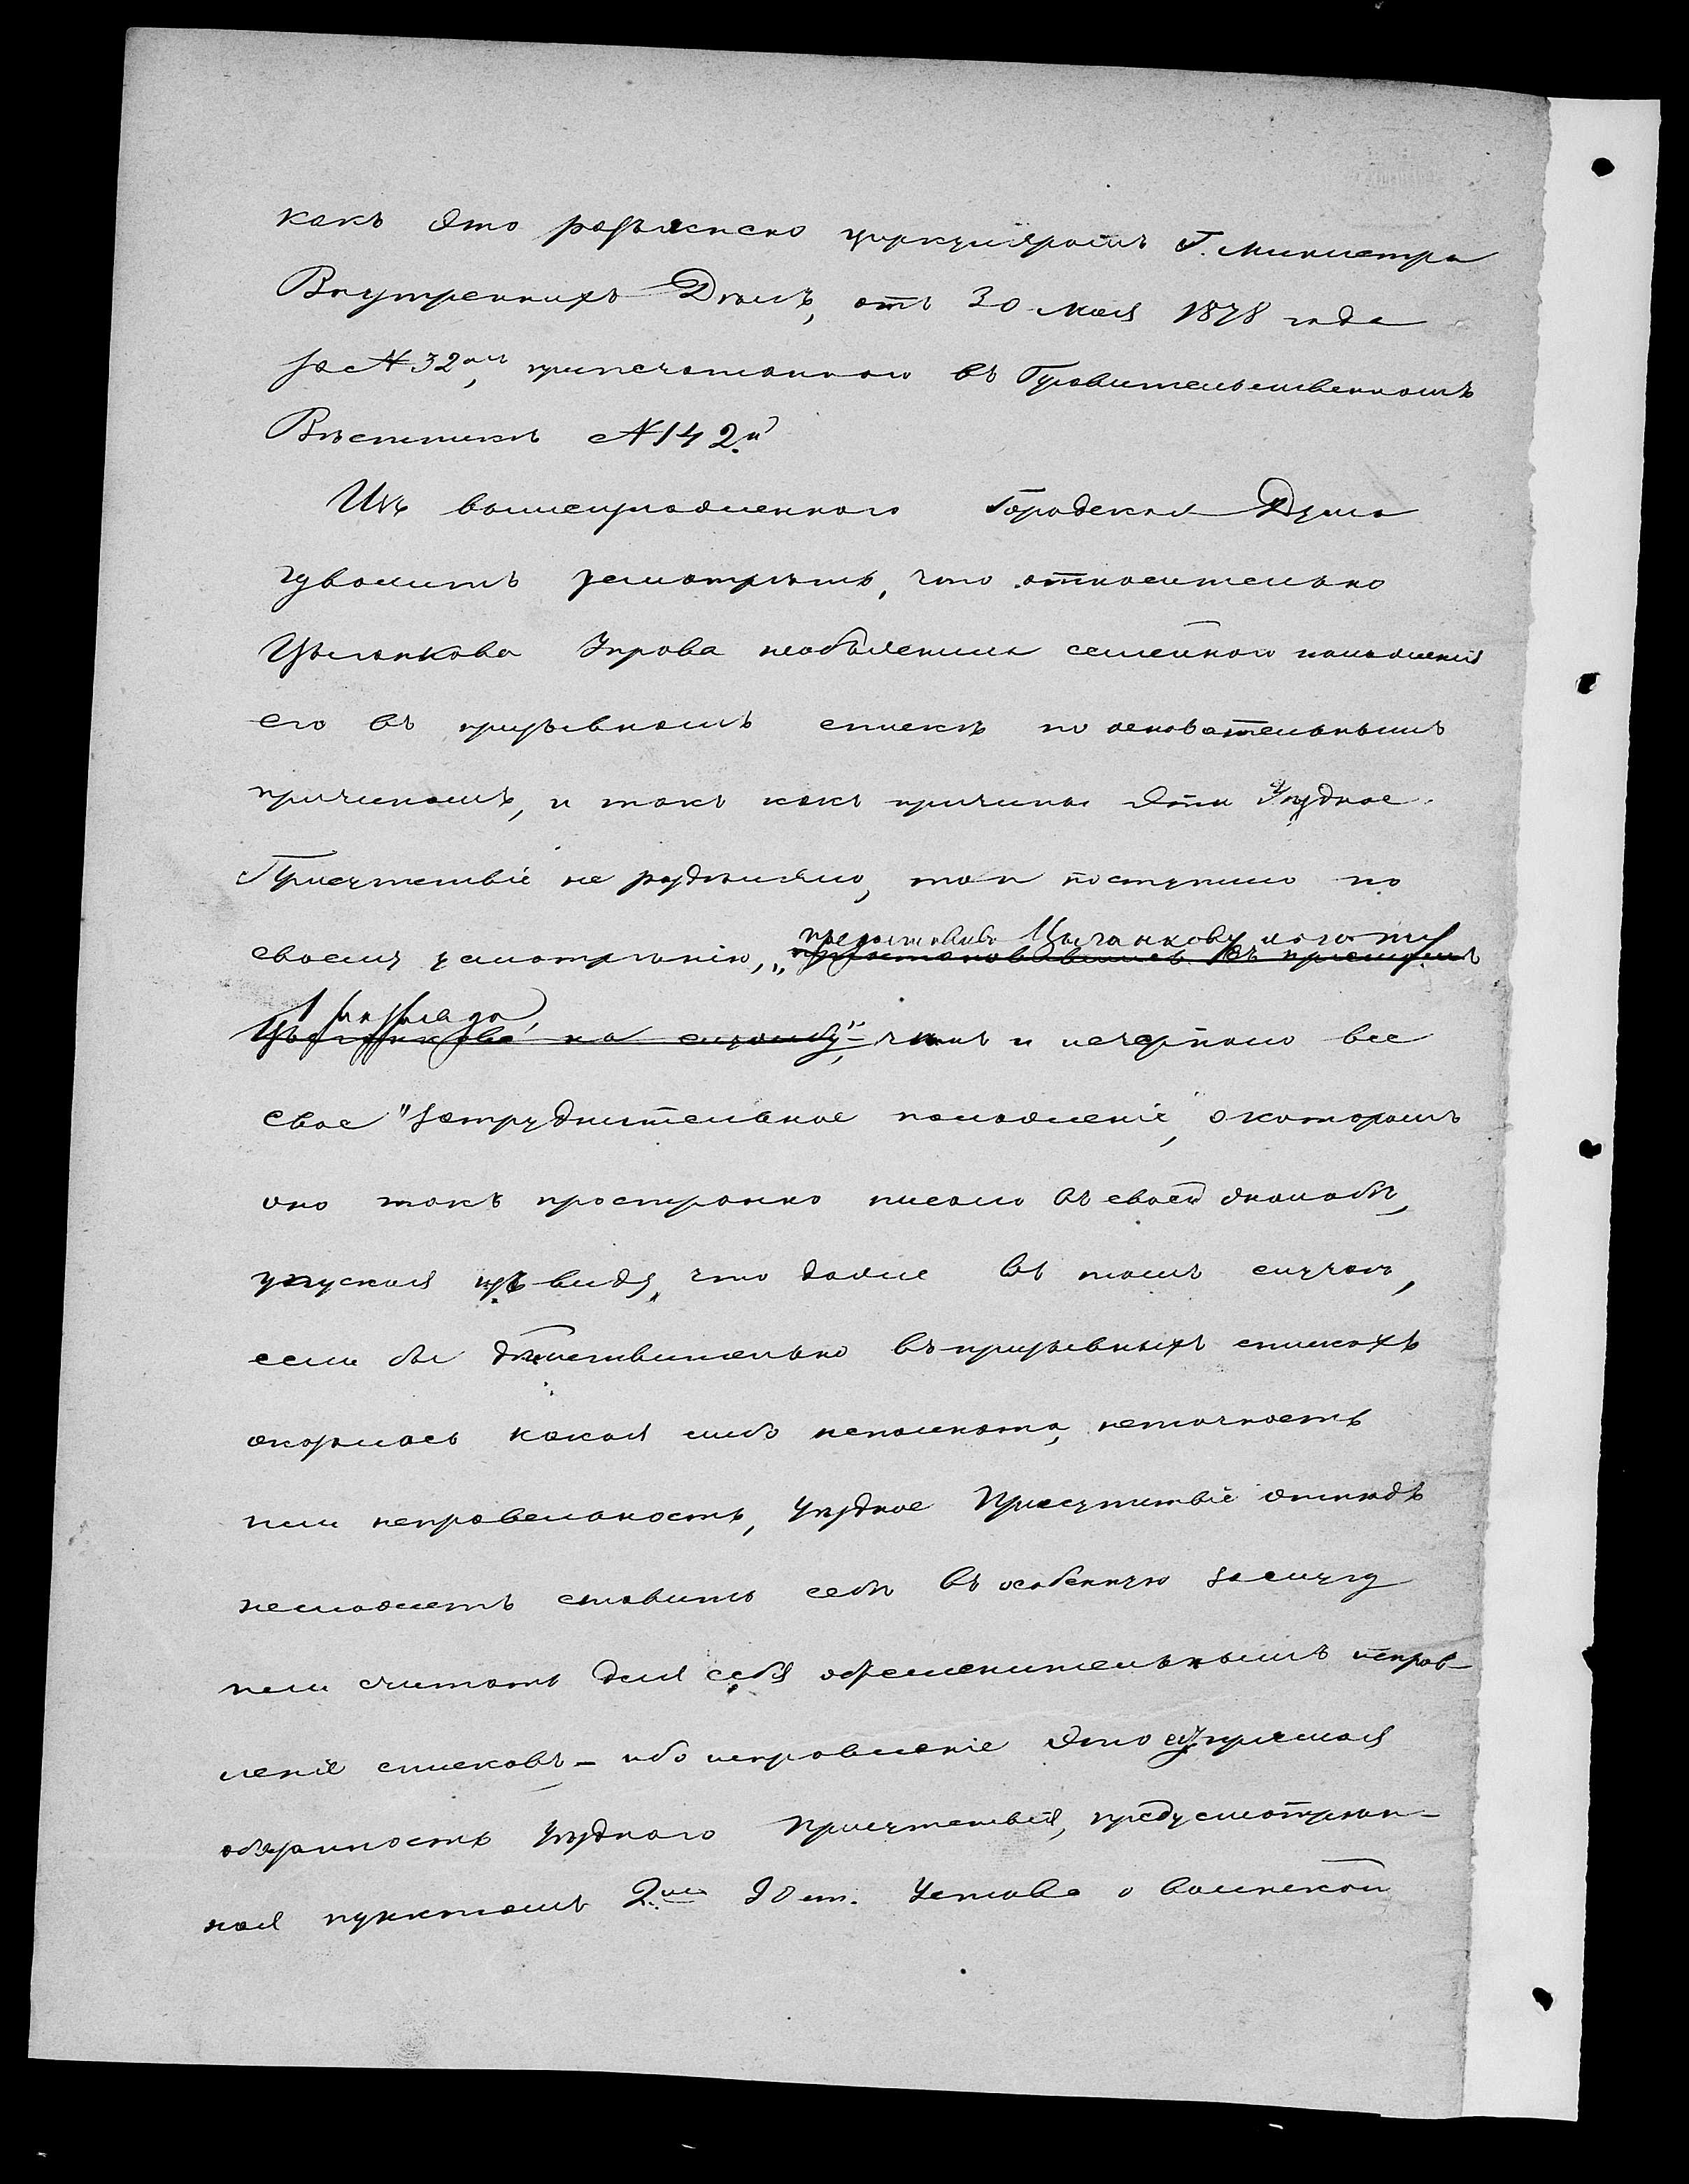 какъ это разъяснено циркуляромъ Г. Министра
Внутреннихъ Дѣлъ, отъ 30 Мая 1878 года
за № 32ом, припечатанномъ въ Правительственномъ
Вѣстникѣ № 142й
Изъ вышеизложеннаго Городская Дума
изволитъ усмотрѣть, что относительно
Цыганкова Управа необъяснила семейнаго положенія
его въ призывномъ спискѣ по основательнымъ
причинамъ, и такъ какъ причины эти Уѣздное
Присутствіе не раздѣляло, то и поступило по
своему усмотрѣнію, предоставивъ Цыганкову льготу
1 разряда, чѣмъ и исчерпало все
свое "затруднительное положеніе", о которомъ
оно такъ пространно писало въ своей жалобѣ,
упуская изъ виду, что даже въ томъ случаѣ,
если бы дѣйствительно въ призывныхъ спискахъ
оказалась какая либо неполнота, неточность
или неправельность, Уѣздное Присутствіе отнюдь
неможетъ ставить себѣ въ особенную заслугу
или считать для себя обременительнымъ исправ-
леніе списковъ - ибо исправленіе это есть прямая
обязанность Уѣзднаго Присутствія, предусмотрѣн-
ная пунктомъ 2мъ 90 ст. Устава о воинской